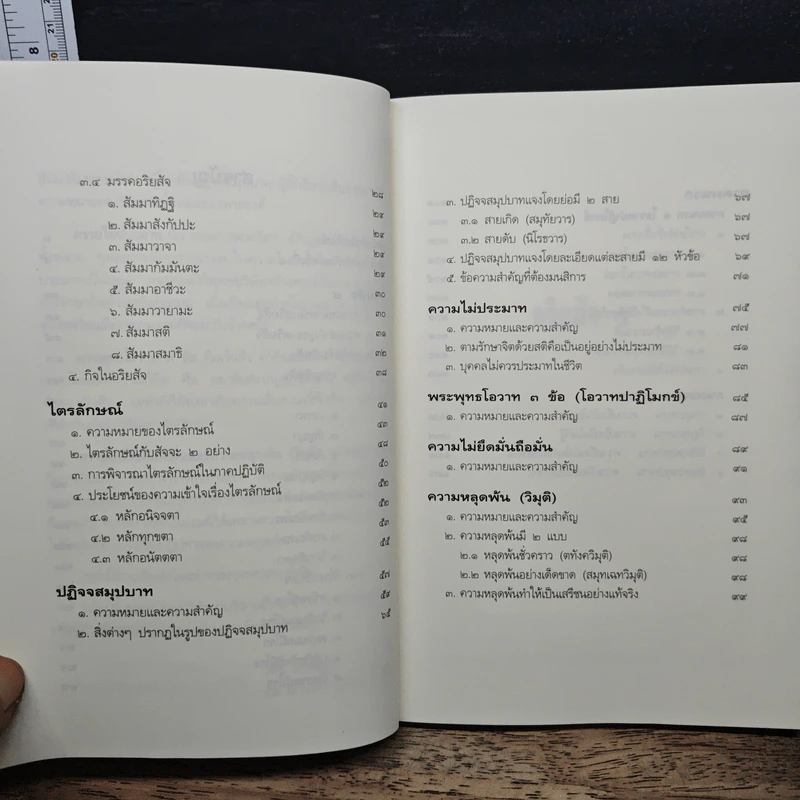 ๓.๔ มรรคอริยสัจ ๒๘
๑. สัมมาทิฏฐิ ๒๙
๒. สัมมาสังกัปปะ ๒๙
๓. สัมมาวาจา ๒๙
๔. สัมมากัมมันตะ ๒๙
๕. สัมมาอาชีวะ ๓๐
๖. สัมมาวายามะ ๓๐
๗. สัมมาสติ ๓๑
๘. สัมมาสมาธิ ๓๒
๔. กิจในอริยสัจ ๓๘
ไตรลักษณ์ ๔๑
๑. ความหมายของไตรลักษณ์ ๔๓
๒. ไตรลักษณ์กับสัจจะ ๒ อย่าง ๔๘
๓. การพิจารณาไตรลักษณ์ในภาคปฏิบัติ ๕๐
๔. ประโยชน์ของความเข้าใจเรื่องไตรลักษณ์ ๕๒
๔.๑ หลักอนิจจตา ๕๒
๔.๒ หลักทุกขตา ๕๓
๔.๓ หลักอนัตตตา ๕๕
ปฏิจจสมุปบาท ๕๗
๑. ความหมายและความสำคัญ ๕๙
๒. สิ่งต่างๆ ปรากฏในรูปของปฏิจจสมุปบาท ๖๕
๓. ปฏิจจสมุปบาทแจงโดยย่อมี ๒ สาย ๖๗
๓.๑ สายเกิด (สมุทัยวาร) ๖๗
๓.๒ สายดับ (นิโรธวาร) ๖๗
๔. ปฏิจจสมุปบาทแจงโดยละเอียดแต่ละสายมี ๑๒ หัวข้อ ๖๙
๕. ข้อความสำคัญที่ต้องมนสิการ ๗๑
ความไม่ประมาท ๗๕
๑. ความหมายและความสำคัญ ๗๗
๒. ตามรักษาจิตด้วยสติคือเป็นอยู่อย่างไม่ประมาท ๘๑
๓. บุคคลไม่ควรประมาทในชีวิต ๘๓
พระพุทธโอวาท ๓ ข้อ (โอวาทปาฏิโมกข์) ๘๕
๑. ความหมายและความสำคัญ ๘๗
ความไม่ยึดมั่นถือมั่น ๘๙
๑. ความหมายและความสำคัญ ๙๑
ความหลุดพ้น (วิมุติ) ๙๓
๑. ความหมายและความสำคัญ ๙๕
๒. ความหลุดพ้นมี ๒ แบบ ๙๘
๒.๑ หลุดพ้นชั่วคราว (ตทังควิมุติ) ๙๘
๒.๒ หลุดพ้นอย่างเด็ดขาด (สมุทเฉทวิมุติ) ๙๘
๓. ความหลุดพ้นทำให้เป็นเสรีชนอย่างแท้จริง ๙๙
8
21
20